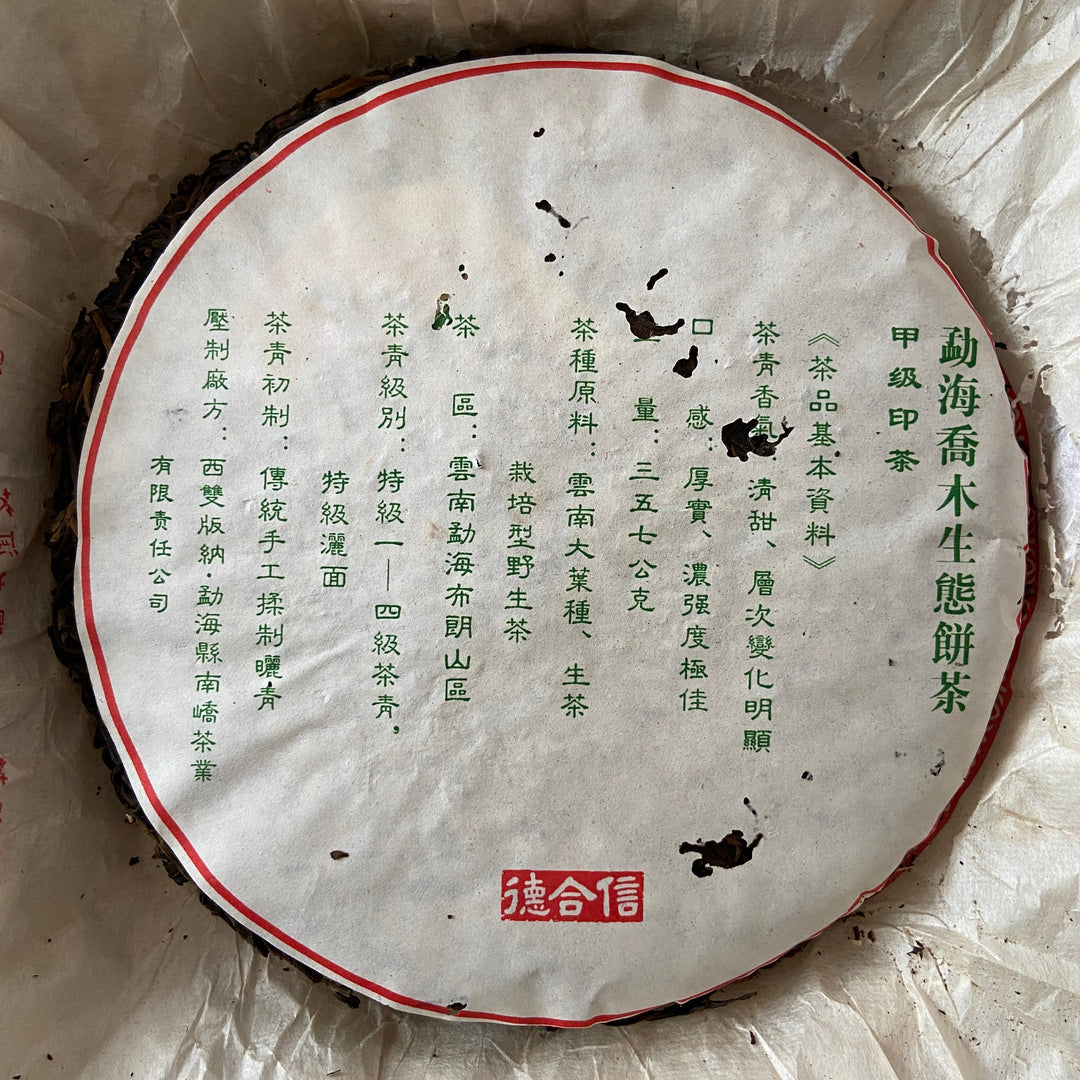 勐海喬木生態餅茶
甲级印茶
《茶品基本資料》
茶青香氣：清甜、層次變化明顯
口　感：厚實、濃强度極佳
量：三五七公克
茶種原料：雲南大葉種、生茶
栽培型野生茶
茶　區：雲南勐海布朗山區
茶青級別：特級一—四級茶青，
特級灑面
茶青初制：傳統手工揉制曬青
壓制廠方：西雙版納·勐海縣南嶠茶業
有限责任公司
德合信